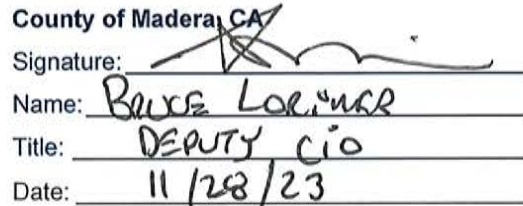 County of Madera, CA
Signature:
Name: BRUCE
Title: DEPUTY CiO
Date: 11/28/23